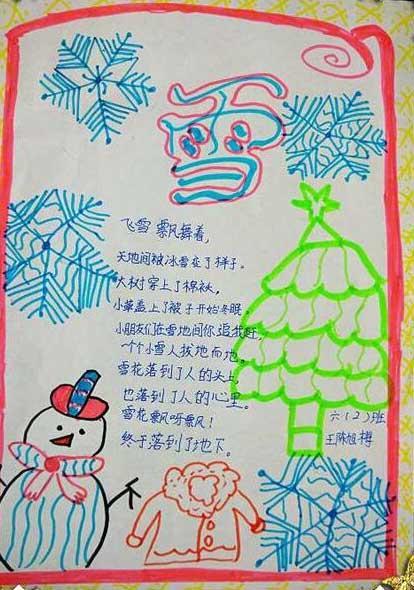 雪
飞雪 飘舞着,
天地间被冰雪了样子。
大树穿上了棉袄,
小草盖上了被子开始冬眠。
小朋友们在雪地间你追我赶,
一个个小雪人拔地而地。
雪花落到了人的头上,
也落到了人的心里。
雪花飘呀飘!
终于落到了地下。
六(2)班
王旭